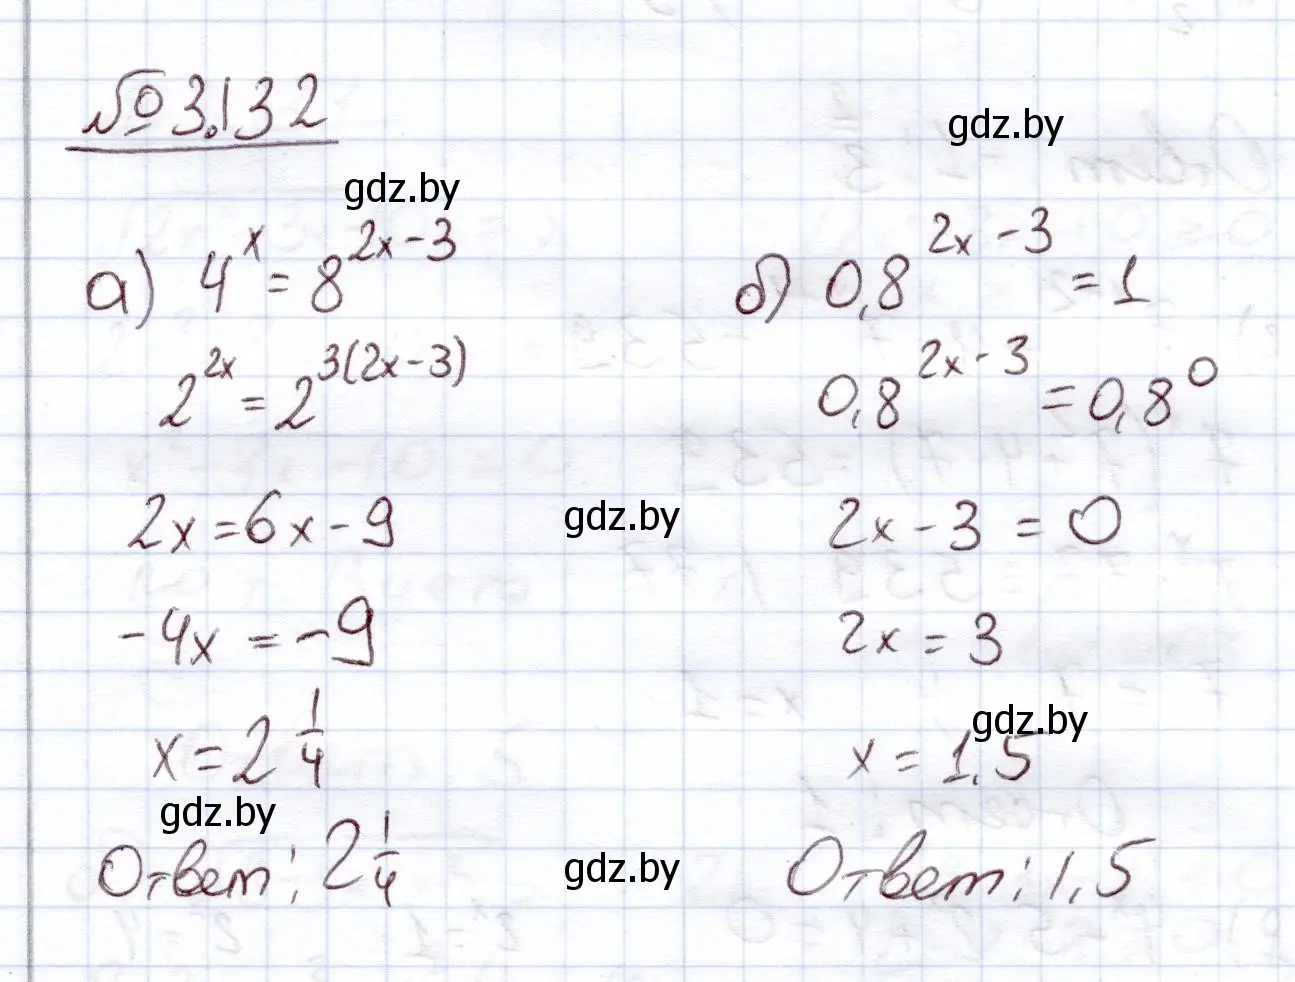 № 3.132
gdz.by
gdz.by
а) 4^x = 8^{2x-3}
2^{2x} = 2^{3(2x-3)}
2x = 6x - 9
-4x = -9
x = 2 1/4
gdz.by
Ответ: 2 1/4
б) 0,8^{2x-3} = 1
0,8^{2x-3} = 0,8^0
gdz.by
2x - 3 = 0
2x = 3
gdz.by
x = 1,5
gdz.by
Ответ: 1,5